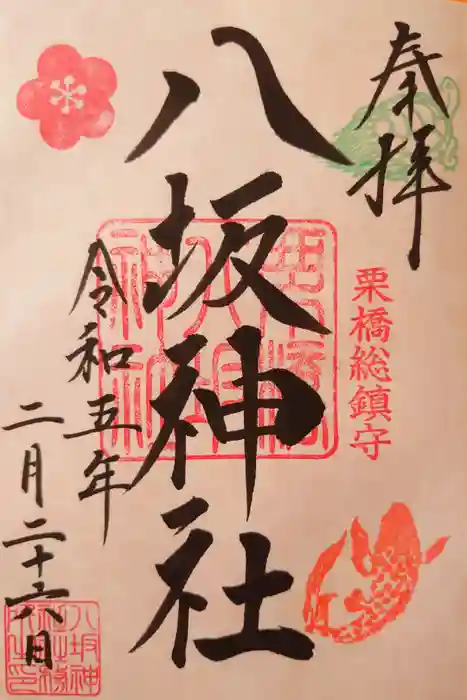 奉拝
栗橋総鎮守
八坂神社
令和五年
二月二十六日